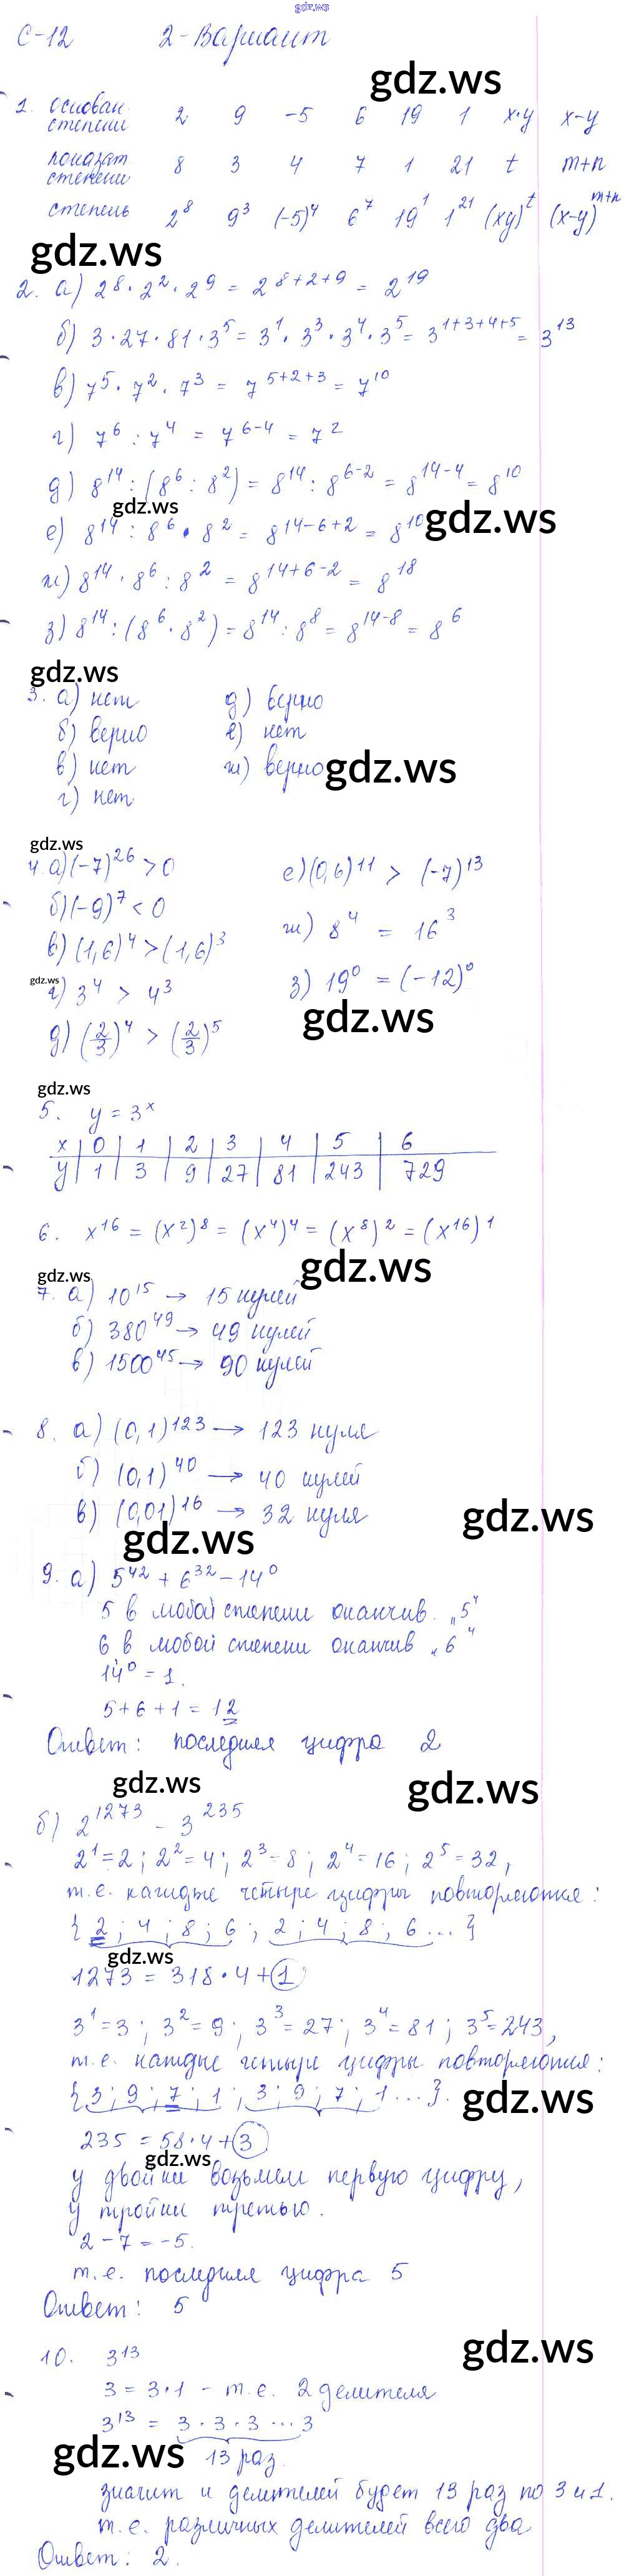 gdz.ws
С-12 2-Вариант
gdz.ws
1. основан степени 2 9 -5 6 19 1 x·y x-y
показат степени 8 3 4 7 1 21 t m+n
степень 2⁸ 9³ (-5)⁴ 6⁷ 19¹ 1²¹ (xy)^t (x-y)^m+n
gdz.ws
2. а) 2⁸·2²·2⁹ = 2^8+2+9 = 2¹⁹
б) 3·27·81·3⁵ = 3¹·3³·3⁴·3⁵ = 3^1+3+4+5 = 3¹³
в) 7⁵·7²·7³ = 7^5+2+3 = 7¹⁰
г) 7⁶ : 7⁴ = 7^6-4 = 7²
д) 8¹⁴ : (8⁶ : 8²) = 8¹⁴ : 8^6-2 = 8^14-4 = 8¹⁰
gdz.ws
е) 8¹⁴ : 8⁶ · 8² = 8^14-6+2 = 8¹⁰
gdz.ws
ж) 8¹⁴ · 8⁶ : 8² = 8^14+6-2 = 8¹⁸
з) 8¹⁴ : (8⁶ · 8²) = 8¹⁴ : 8⁸ = 8^14-8 = 8⁶
gdz.ws
3. а) нет д) верно
б) верно е) нет
в) нет ж) верно
gdz.ws
г) нет
gdz.ws
4. а) (-7)²⁶ > 0 е) (0,6)¹¹ > (-7)¹³
б) (-9)⁷ < 0 ж) 8⁴ = 16³
в) (1,6)⁴ > (1,6)³ з) 19⁰ = (-12)⁰
gdz.ws
г) 3⁴ > 4³
gdz.ws
д) (2/3)⁴ > (2/3)⁵
gdz.ws
5. y = 3ˣ
x | 0 | 1 | 2 | 3 | 4 | 5 | 6
y | 1 | 3 | 9 | 27 | 81 | 243 | 729
6. x¹⁶ = (x²)⁸ = (x⁴)⁴ = (x⁸)² = (x¹⁶)¹
gdz.ws
gdz.ws
7. а) 10¹⁵ → 15 нулей
б) 380⁴⁹ → 49 нулей
в) 1500⁴⁵ → 90 нулей
8. а) (0,1)¹²³ → 123 нуля
б) (0,1)⁴⁰ → 40 нулей
в) (0,01)¹⁶ → 32 нуля
gdz.ws
gdz.ws
9. а) 5⁴² + 6³² - 14⁰
5 в любой степени оканчив. "5"
6 в любой степени оканчив "6"
14⁰ = 1.
5+6+1 = 12
Ответ: последняя цифра 2
gdz.ws
gdz.ws
б) 2¹²⁷³ - 3²³⁵
2¹=2; 2²=4; 2³=8; 2⁴=16; 2⁵=32,
т.е. каждые четыре цифры повторяются:
{2; 4; 8; 6; 2; 4; 8; 6 ...}
gdz.ws
1273 = 318·4+1
3¹=3; 3²=9; 3³=27; 3⁴=81; 3⁵=243,
т.е. каждые четыре цифры повторяются:
{3; 9; 7; 1; 3; 9; 7; 1 ...}.
gdz.ws
235 = 58·4+3
gdz.ws
у двойки возьмем первую цифру,
у тройки третью.
2-7 = -5.
т.е. последняя цифра 5
Ответ: 5
gdz.ws
10. 3¹³
3 = 3·1 - т.е. 2 делителя
3¹³ = 3·3·3 ... 3
gdz.ws
13 раз.
значит и делителей будет 13 раз по 3 и 1.
т.е. различных делителей всего два
Ответ: 2.